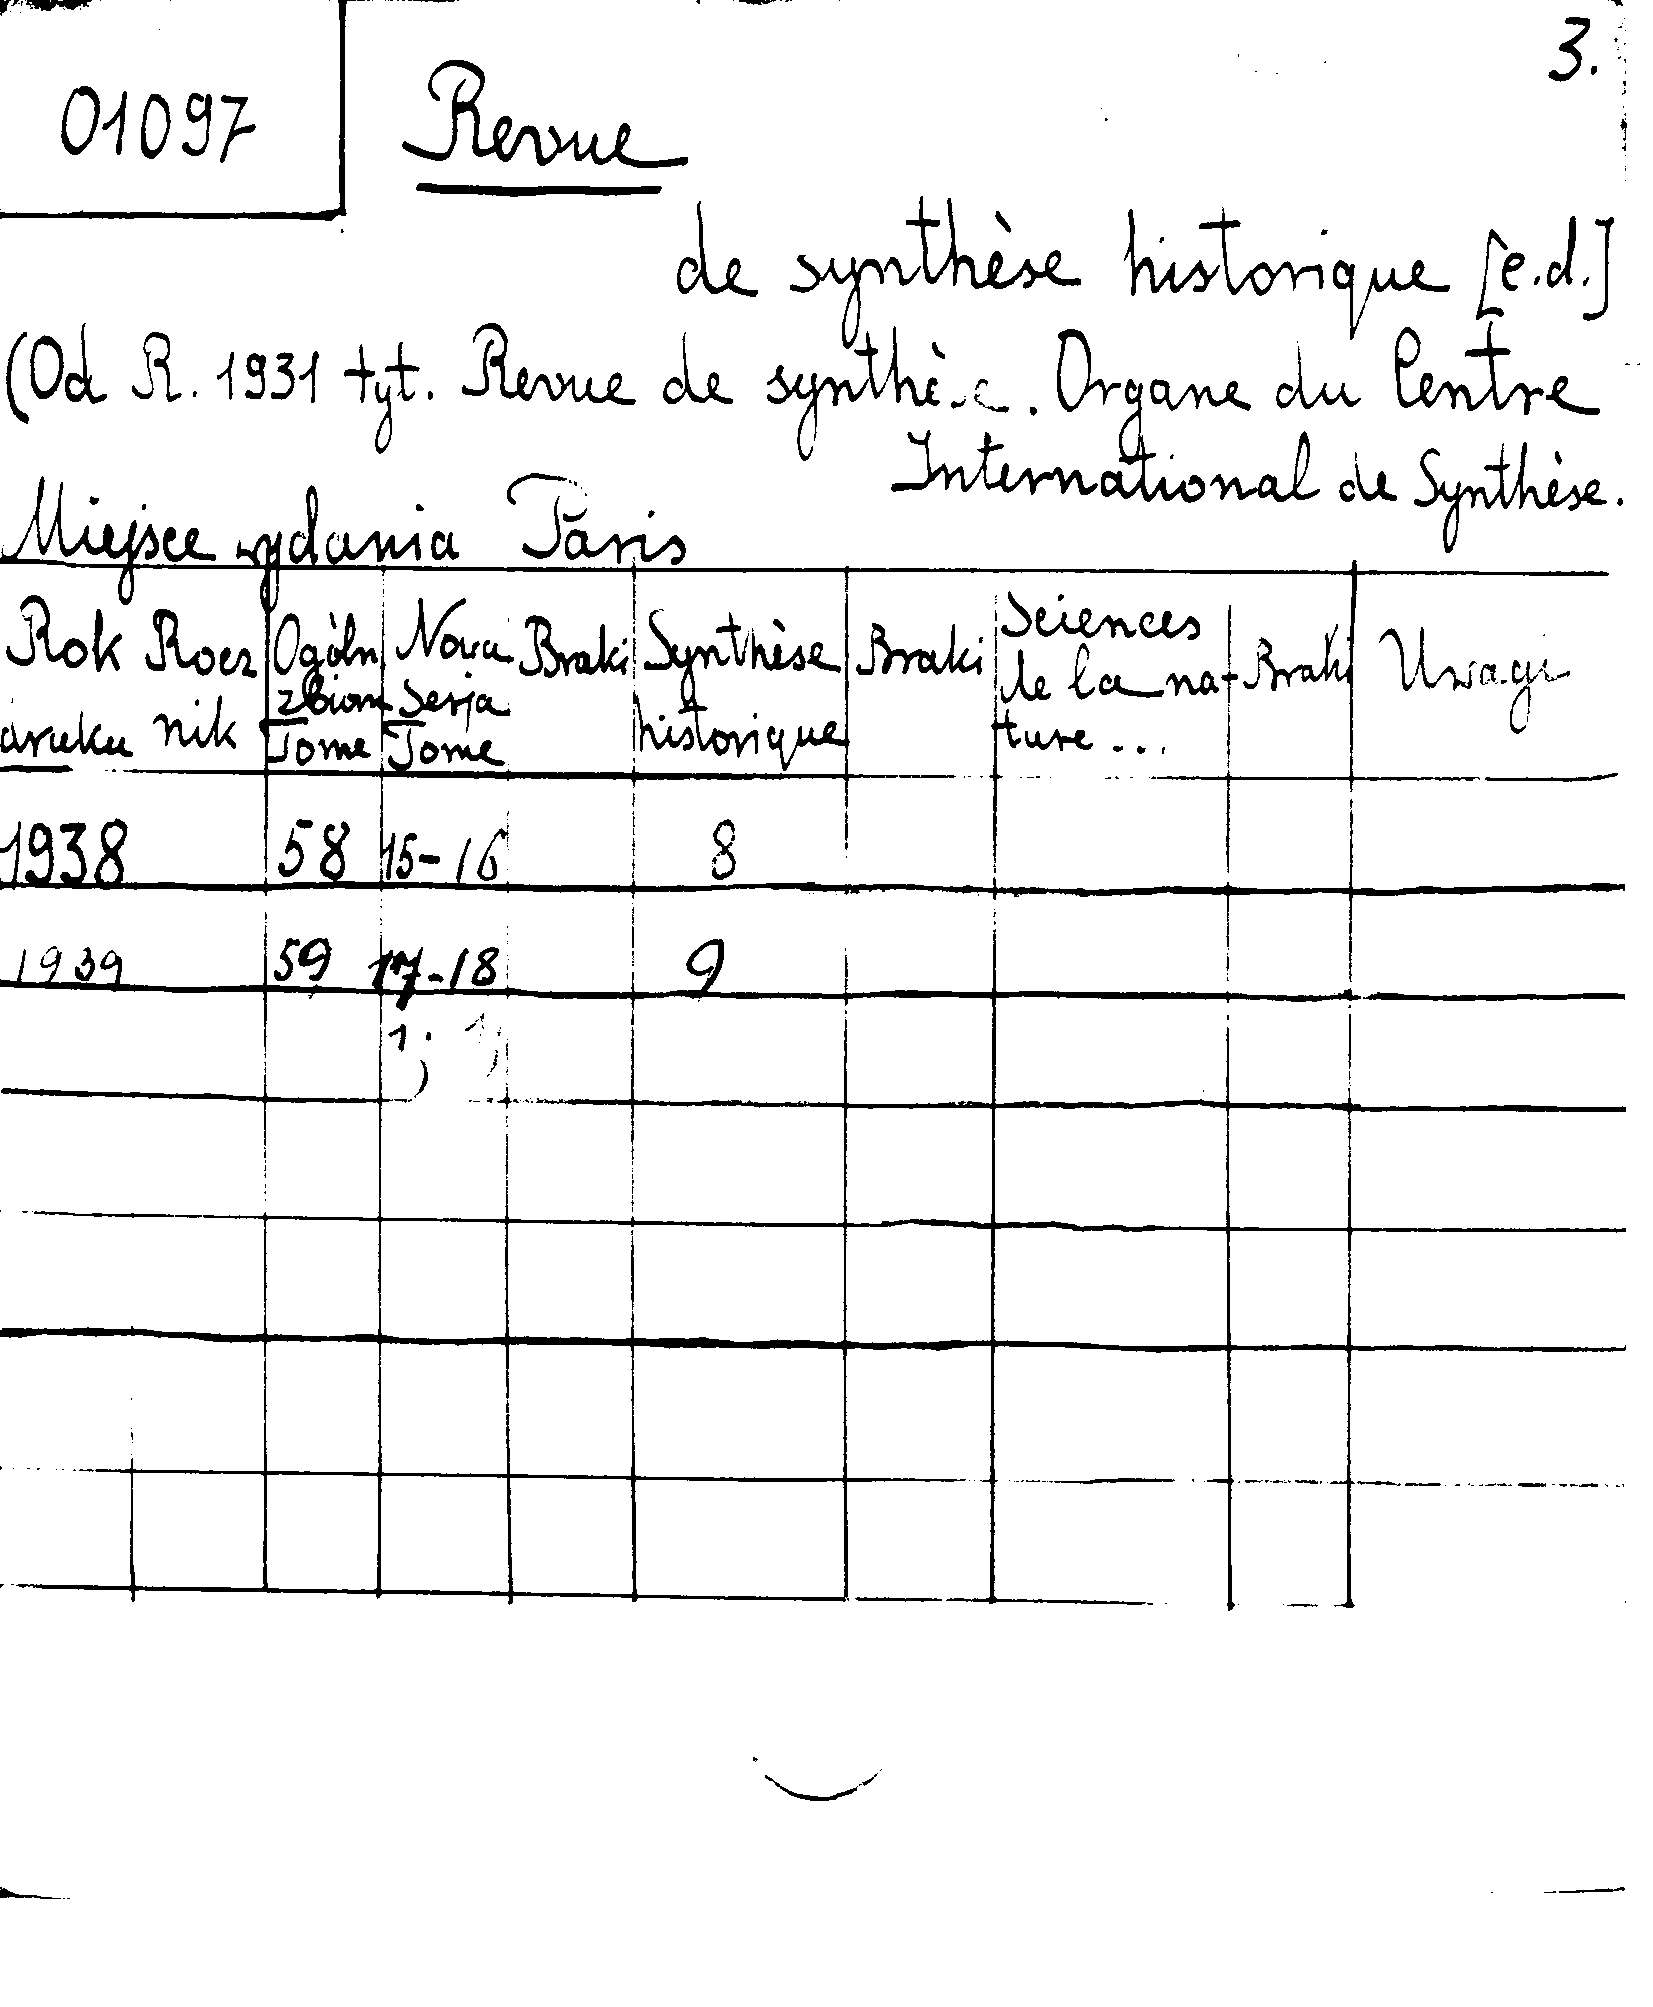 3.
01097
Revue
de synthèse historique [c.d.]
(Od R. 1931 tyt. Revue de synthèse. Organe du Centre
International de Synthèse.
Miejsce wydania Paris
Rok druku Rocznik Ogóln zbioru Tome Nova Serja Tome Braki Synthèse historique Braki Sciences de la nature... Braki Uwagi
1938 58 15-16 8
1939 59 17-18 9